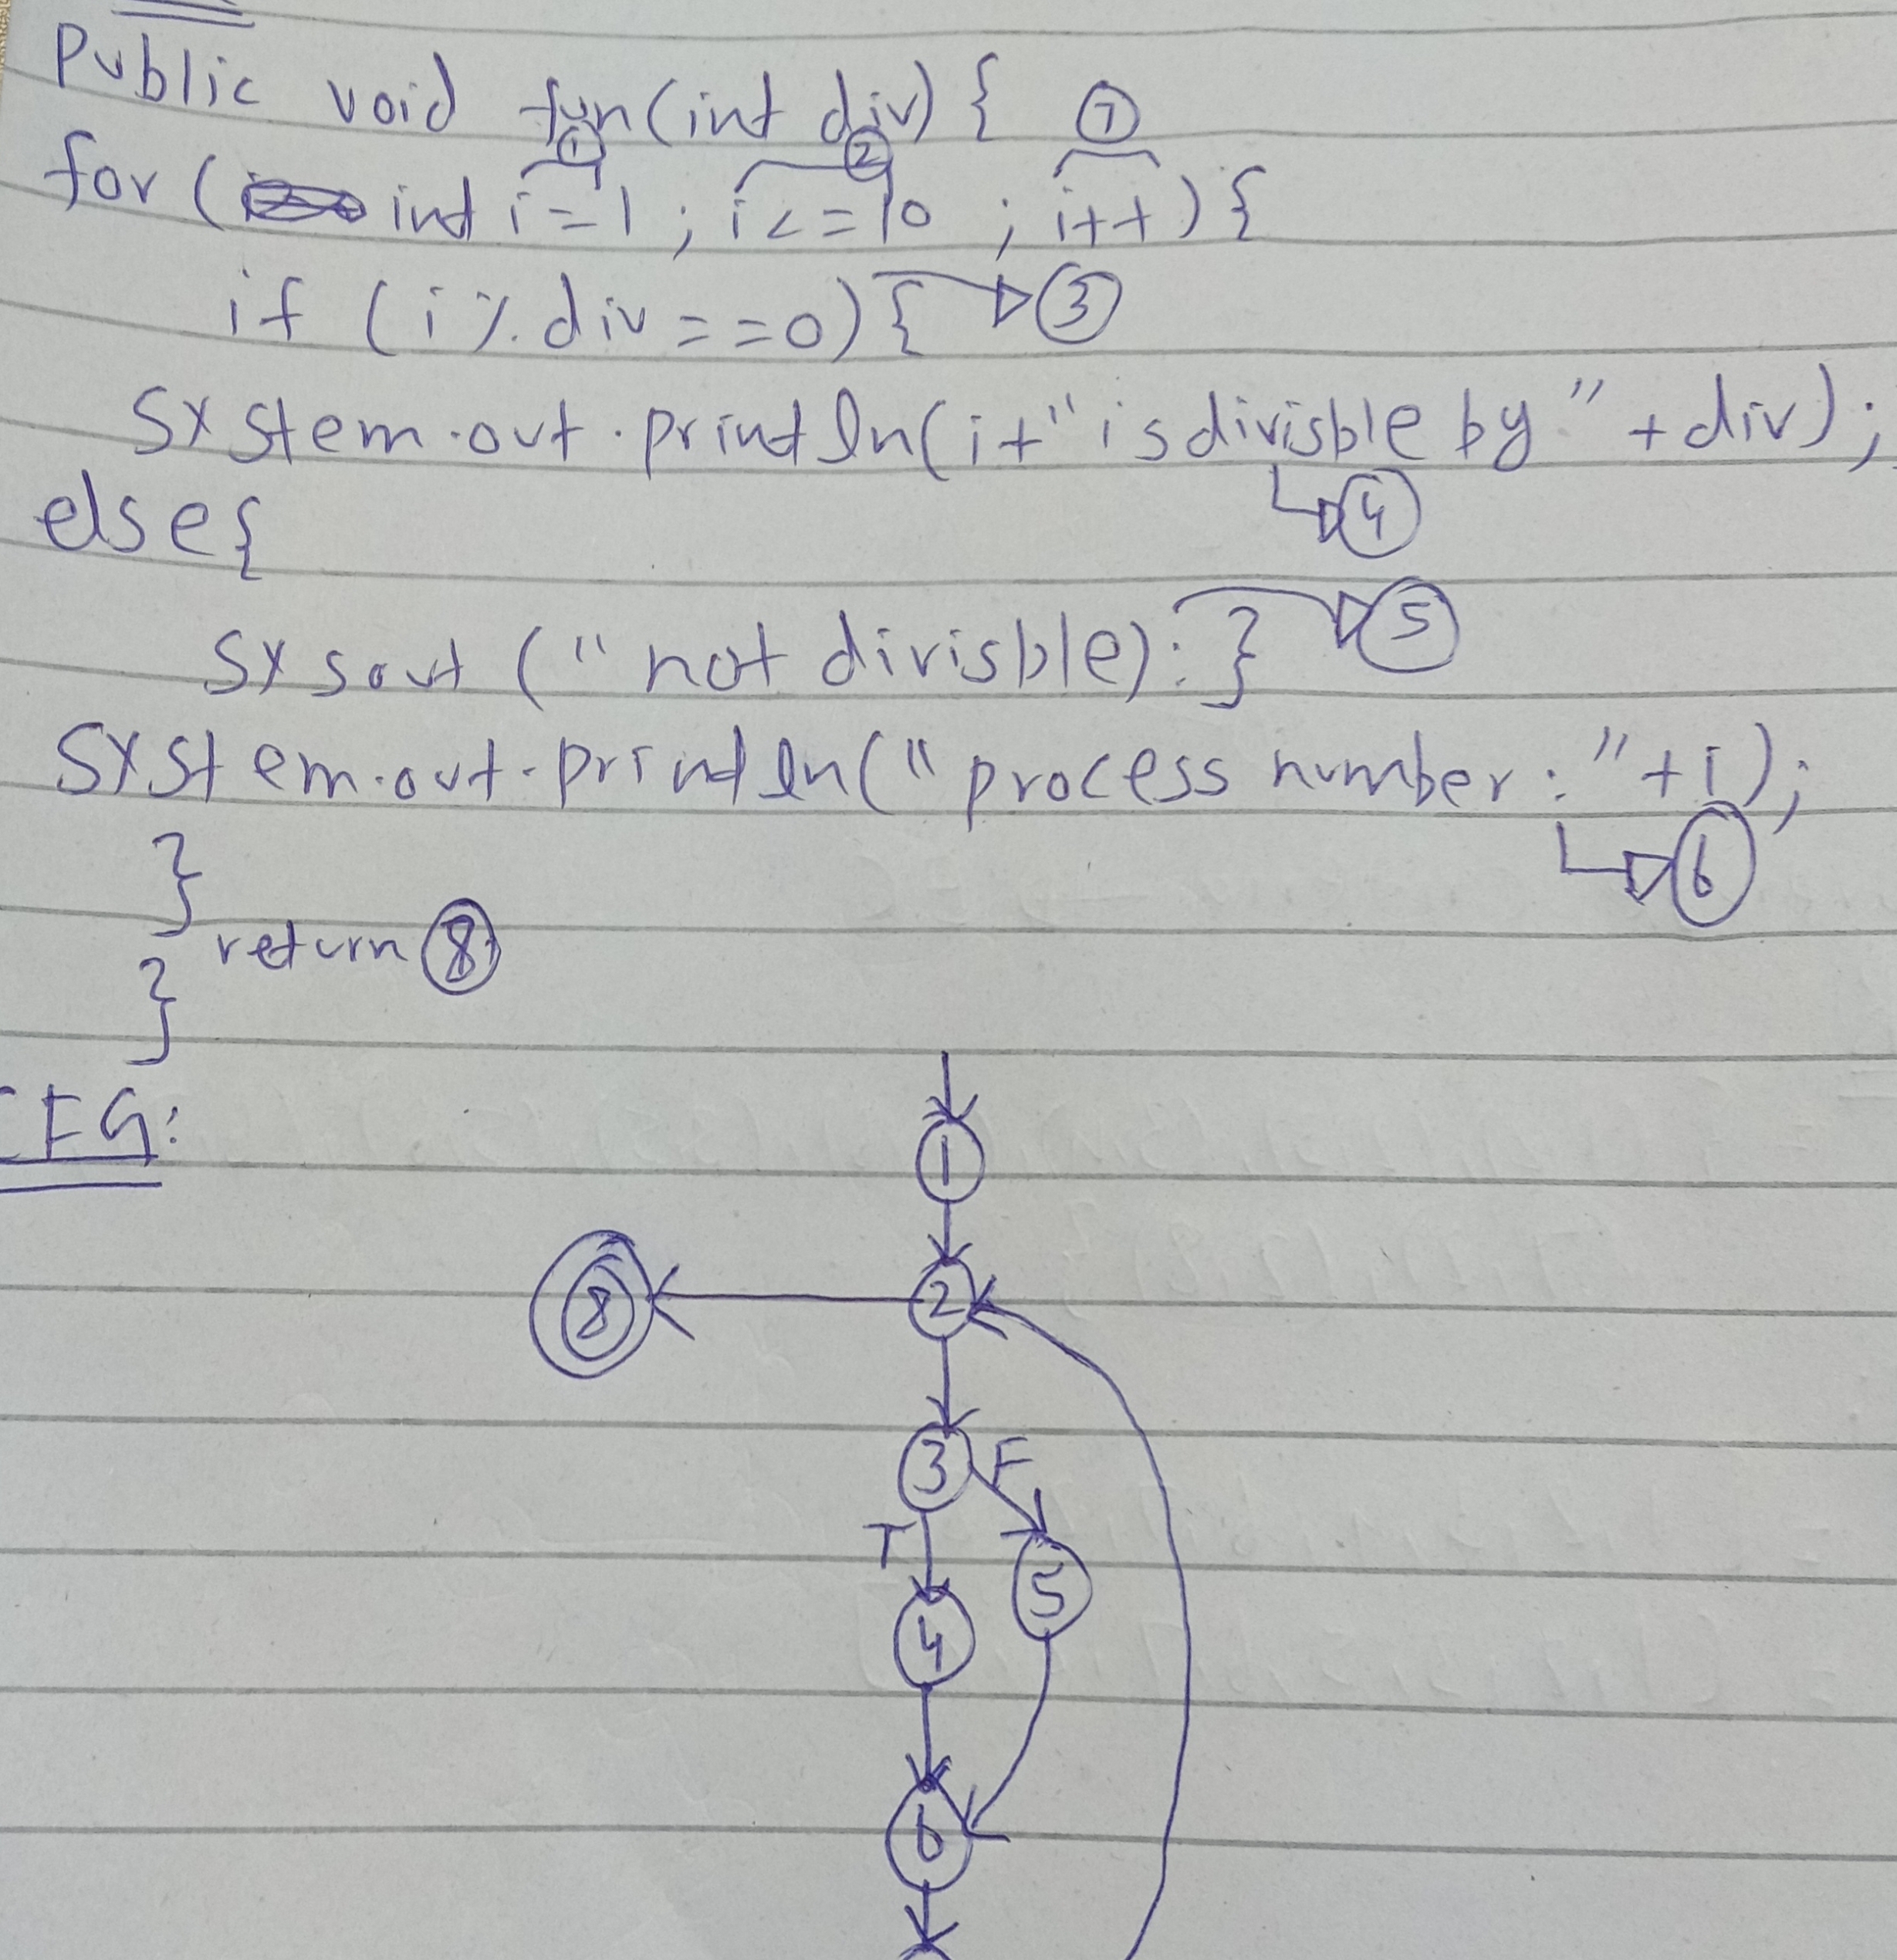 Public void fun(int div) { ⑦
① ②
for ( int i=1 ; i<=10 ; i++) {
if (i % div ==0) { ③
System.out.println(i+" is divisble by " + div);
④
else {
⑤
Sysout (" not divisble); }
System.out.println(" process number : " + i);
⑥
}
return ⑧
}
CFG:
1
8 2
3 F
T
5
4
6